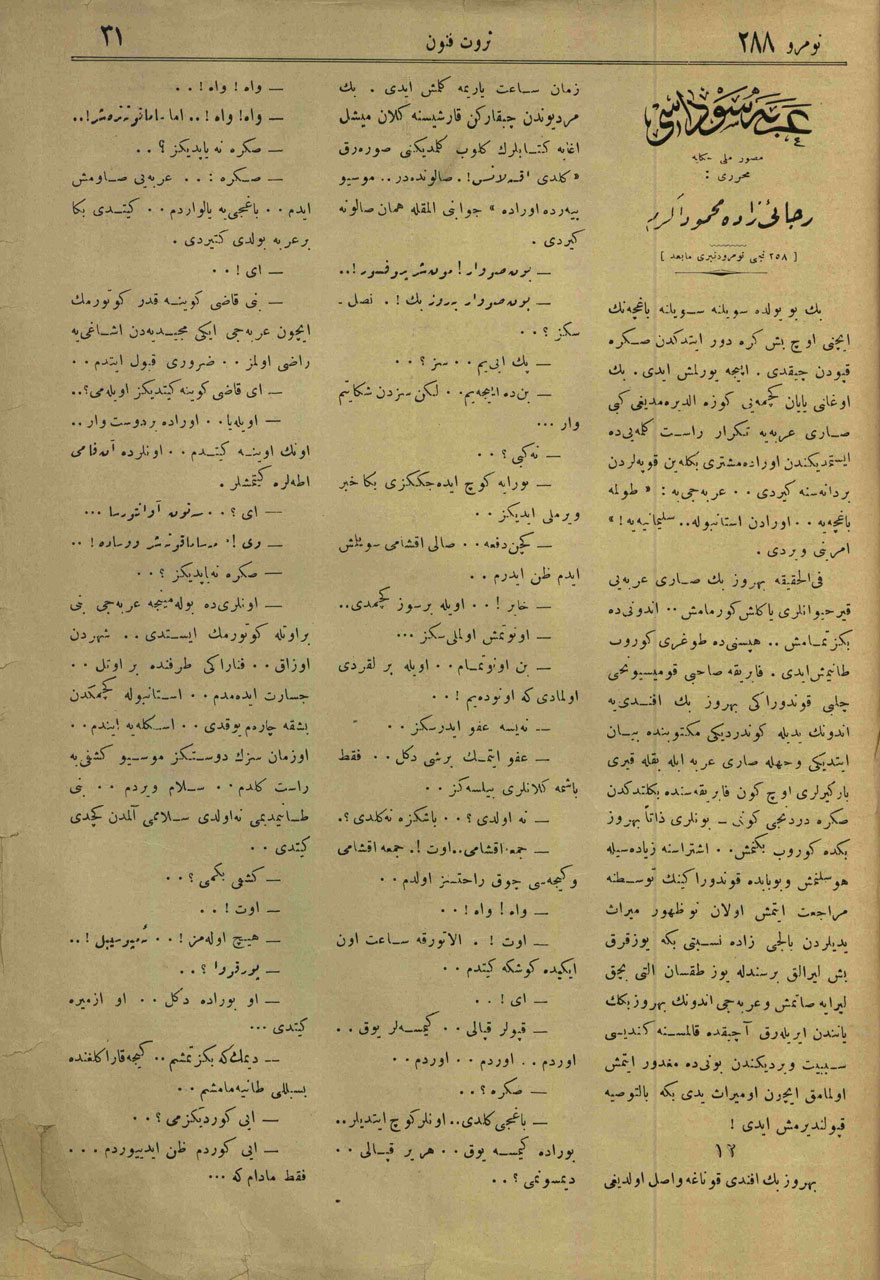 نومرو ٢٨٨
ثروت فنون
٣١
عربه سوداسی
مصور ملی حکایه
محرری :
رجائی زاده محمود اکرم
[ ٢٥٨ نجی نومرودنبری مابعد ]
بك بو یولده سویلنه سویلنه باغچه‌نك
ایچنی اوچ بش كره دور ایتدكدن صكره
قپودن چیقدی . ایجه یورلمش ایدی . بك
اوغلنی یایان كچمه‌یی كوزه الدیره‌مدیغی كبی
صاری عربه‌یه تكرار راست كلمه‌یی‌ده
ایستمدیكندن اوراده‌مشتری بكله‌ین قوپه‌لردن
بردانه‌سنه كیردی ٠٠ عربه‌جی‌یه : « طولمه
باغچه‌یه ٠٠ اورادن استانبوله٠٠ سلیمانیه‌یه ! »
امرنی ویردی .
فی‌الحقیقه بهروز بك صاری عربه‌یی
قیر حیوانلری یاكلش كورمامش ٠٠ اندونی‌ده
بكزتمامش ٠٠ هپسنی‌ده طوغری كوروب
طانیمش‌ایدی . فابریقه صاحبی قومیسیونجی
چلبی قوندوراكی بهروز بك افندی‌یه
اندونك یدیله كوندردیكی مكتوبنده بیان
ایتدیكی وجهله صاری عربه ایله بقله قیری
باركیرلری اوچ كون فابریقه‌سنده بكلتدكدن
صكره دردنجی كونی ـ بونلری ذاتاً بهروز
بكده كوروب بكنمش ٠٠ اشتراسنه زیاده‌سیله
هوسلنمش وبوبابده قوندوراكینك توسطنه
مراجعت ایتمش اولان نوظهور میراث
یدیلردن بالجی زاده نسیتی بكه یوزقرق
بش لیرالق برسندله یوز طقسان التی بچق
لیرایه صاتمش وعربه‌جی اندونك بهروزبكك
یانندن ایریله‌رق آچیقده قالمسنه كندیسی
سببیت ویردیكندن بونی‌ده مغدور ایتمش
اولمامق ایچون اومیراث یدی بكه بالتوصیه
قبولندیرمش ایدی !
١٢
بهروز بك افندی قوناغه واصل اولدیغی
زمان ساعت یاریمه كلمش ایدی . بك
مردیوندن چیقاركن قارشیسنه كلان میشل
اغایه كتابلرك كلوب كلمدیكنی صوره‌رق
« كلدی اقسه‌لانس ! . صالونده‌در ٠٠ موسیو
پیه‌رده اوراده » جوابنی المقله همان صالونه
كیردی .
— بون‌صوار ! مون‌شر پروفسور ! ..
— بون‌صوار بهروز بك ! . نصل ـ
سكز ؟ ٠٠
— پك ایی‌یم ٠٠ سز ؟ ٠٠
— بن‌ده ایجه‌یم ٠٠ لكن سزدن شكایتم
وار ...
— نه‌كبی ؟ ٠٠
— بورایه كوچ ایده‌جككزی بكا خبر
ویرملی ایدیكز ٠٠
— كچن‌دفعه ٠٠ صالی اقشامی سویلمش
ایدم ظن ایدرم ..
— خایر ! ٠٠ اویله برسوز كچمدی ..
— اونوتمش اولمالی سكز ...
— بن اونوتمام ٠٠ اویله بر لقردی
اولمادی كه اونوده‌یم ! ٠٠
— نه‌یسه عفو ایدرسكز ٠٠
— عفو ایتمك برشی دكل ٠٠ فقط
باشمه كلانلری بیلسه‌كز ٠٠
— نه اولدی ؟ ٠٠ باشكزه نه‌كلدی ؟.
— جمعه اقشامی ٠٠ اوت ! . جمعه اقشامی
وكیجه‌یی چوق راحتسز اولدم ٠٠
— واه ! واه ! ٠٠
— اوت ! . الاتورقه ساعت اون
ایكیده كوشكه كیتدم ٠٠
— ای ! ٠٠
— قپولر قپالی ٠٠ كیمسه‌لر یوق ٠٠
اوردم ٠٠ اوردم ٠٠ اوردم ٠٠
— صكره ؟ ٠٠
— باغچی كلدی ٠٠ اونلر كوچ ایتدیلر ٠٠
بوراده كیمسه یوق ٠٠ هر یر قپالی ٠٠
دیمسونمی ؟ ٠٠
— واه ! واه ! ٠٠
— واه ! واه ! ٠٠ اما
— صكره نه‌یاپدیكز ؟ ٠٠
— صكره : ٠٠ عربه‌یی صاومش
ایدم ٠٠ باغچی‌یه یالواردم ٠٠ كیتدی بكا
برعربه بولدی كتیردی .
— ای ! ٠٠
— بنی قاضی كوینه قدر كوتورمك
ایچون عربه‌جی ایكی مجیدیه‌دن اشاغی‌یه
راضی اولمز ٠٠ ضروری قبول ایتدم ٠٠
— ای قاضی كوینه كیتدیكز اویله‌می ؟ ..
— اویله‌یا ٠٠ اوراده بردوست وار ..
اونك اوینه كیتدم ٠٠ اونلرده آن‌فامی
اطه‌لره كیتمشلر .
— ای ؟ ٠٠ سه‌تون آوانتورسا ...
— وی ! ٠
— صكره نه‌یاپدیكز ؟ ٠٠
— اونلری‌ده بوله‌مینجه عربه‌جی بنی
براوتله كوتورمك ایستدی ٠٠ شهردن
اوزاق ٠٠ فناراكی طرفنده بر اوتل ٠٠
جسارت ایده‌مدم ٠٠ استانبوله كچمكدن
بشقه چاره‌م یوقدی ٠٠ اسكله‌یه ایندم ٠٠
اوزمان سزك دوستكز موسیو كشفی‌یه
راست كلدم ٠٠ سلام ویردم ٠٠ بنی
طانیمدیمی نه‌اولدی سلاممی آلمدن كچدی
كیتدی ٠٠
— كشفی بكمی ؟ ٠٠
— اوت ! ٠٠
— هیچ اوله‌مز ! ٠٠
— پورقوا ؟ ٠٠
— او بوراده دكل ٠٠ او ازمیره
كیتدی ...
— دیمك‌كه بكزتمشم ٠٠ كیجه قاراكلغنده
بسبللی طانیه‌مامشم ٠٠
— ایی كوردیكزمی ؟ ٠٠
— ایی كوردم ظن ایدییوردم ...
فقط مادام كه ...